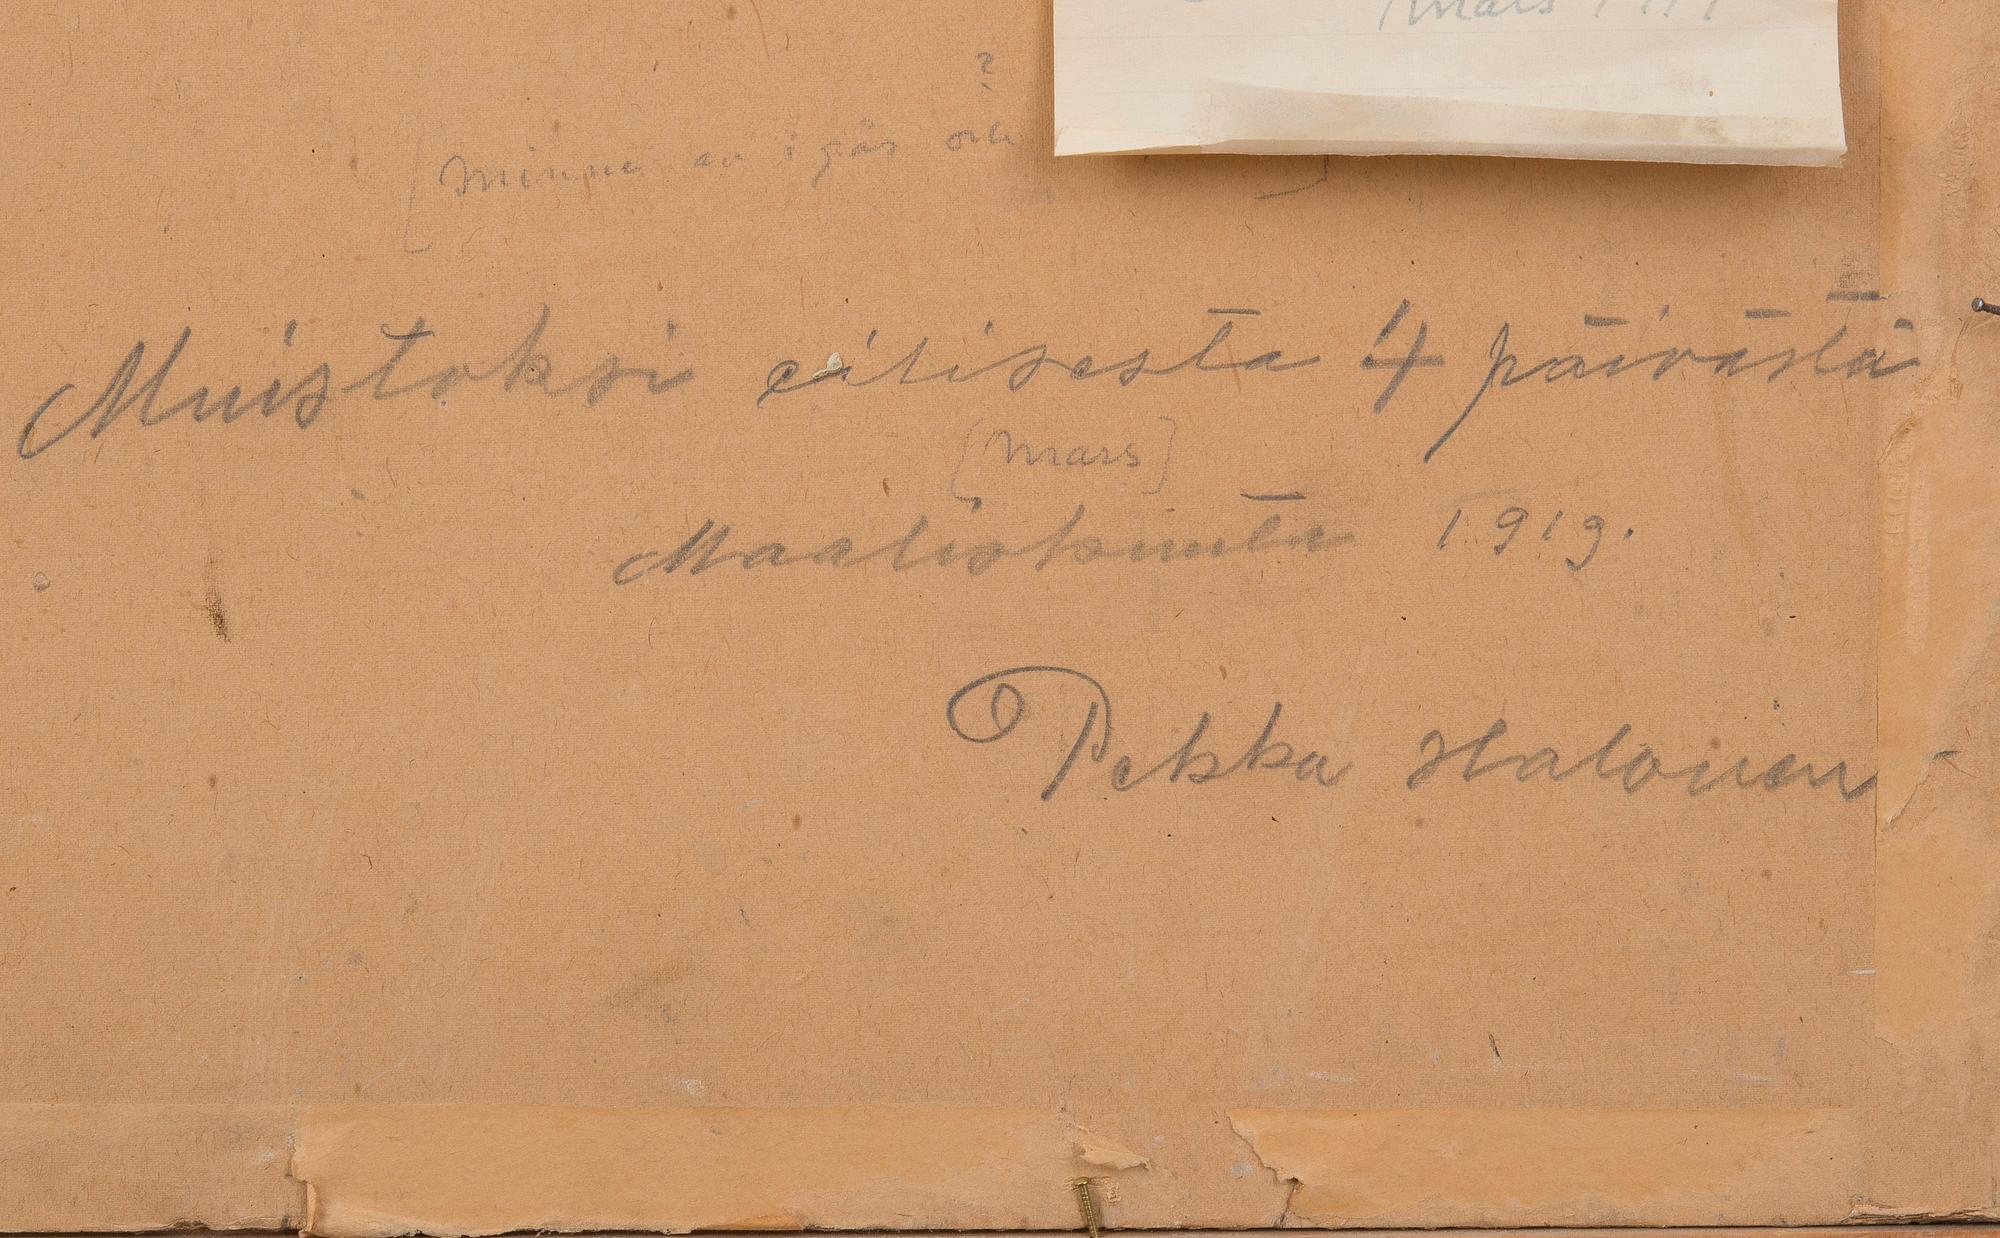 mars 1919
?
[Minne av i går och
Muistoksi eilisestä 4 päivästä
[Mars]
Maaliskuuta 1919.
Pekka Halonen